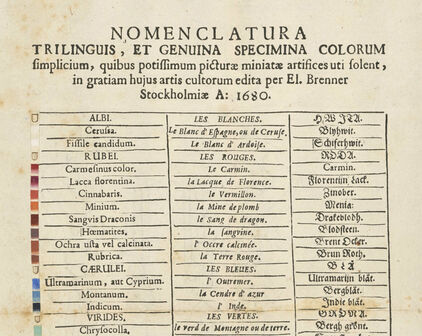 NOMENCLATURA
TRILINGUIS, ET GENUINA SPECIMINA COLORUM
simplicium, quibus potissimum picturæ miniatæ artifices uti solent,
in gratiam hujus artis cultorum edita per El. Brenner
Stockholmiæ A: 1680.
ALBI. LES BLANCHES. HWJTA.
Cerussa. Le Blanc d'Espagne, ou de Ceruse. Blyhwit.
Fissile candidum. Le Blanc d'Ardoise. Schiferhwit.
RUBEI. LES ROUGES. RÖDA.
Carmesinus color. Le Carmin. Carmin.
Lacca florentina. la Lacque de Florence. Florentijn Lack.
Cinnabaris. le Vermillon. Zinober.
Minium. la Mine de plomb Menia:
Sangvis Draconis le Sang de dragon. Drakeblodh.
Hœmatites. la sangvine. Blodsteen.
Ochra usta vel calcinata. l'Occre calcinée. Brent Ocker.
Rubrica. la Terre Rouge. Brun Roth.
CÆRULEI. LES BLEUES. BLÅ
Ultramarinum, aut Cyprium. l'Outremer. Ultramarijn blåt.
Montanum. la Cendre d'azur Bergblåt.
Indicum. l'Inde. Indie blåt.
VIRIDES, LES VERTES. GRÖNA.
Chrysocolla. le verd de Montagne ou de terre. Bergh gröne.